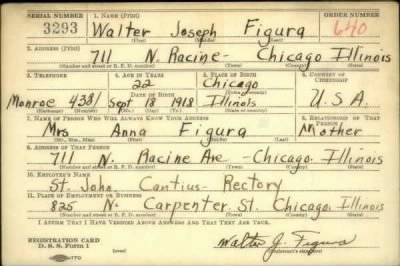 SERIAL NUMBER 1. NAME (Print) ORDER NUMBER
3293 Walter Joseph Figura 640
(First) (Middle) (Last)
2. ADDRESS (Print)
711 N. Racine - Chicago Illinois
(Number and street or R. F. D. number) (Town) (County) (State)
3. TELEPHONE 4. AGE IN YEARS 5. PLACE OF BIRTH 6. COUNTRY OF CITIZENSHIP
22 Chicago
(Town or county)
Monroe 4381 Sept 18 1918 Illinois U.S.A.
(Exchange) (Number) (Mo.) (Day) (Yr.) (State or country)
7. NAME OF PERSON WHO WILL ALWAYS KNOW YOUR ADDRESS 8. RELATIONSHIP OF THAT PERSON
Mrs Anna Figura Mother
(Mr., Mrs., Miss) (First) (Middle) (Last)
9. ADDRESS OF THAT PERSON
711 N. Racine Ave - Chicago. Illinois
(Number and street or R. F. D. number) (Town) (County) (State)
10. EMPLOYER'S NAME
St. John Cantius - Rectory
11. PLACE OF EMPLOYMENT OR BUSINESS
825 N- Carpenter St. Chicago. Illinois
(Number and street or R. F. D. number) (Town) (County) (State)
I AFFIRM THAT I HAVE VERIFIED ABOVE ANSWERS AND THAT THEY ARE TRUE.
REGISTRATION CARD
D. S. S. Form 1 Walter J. Figura
(Registrant's signature)